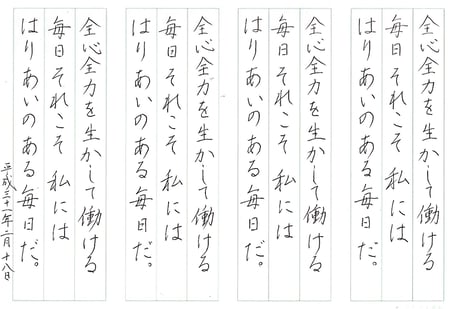 全心全力を生かして働ける
毎日それこそ私には
はりあいのある毎日だ。
全心全力を生かして働ける
毎日それこそ私には
はりあいのある毎日だ。
全心全力を生かして働ける
毎日それこそ私には
はりあいのある毎日だ。
全心全力を生かして働ける
毎日それこそ私には
はりあいのある毎日だ。
平成三十一年二月十八日